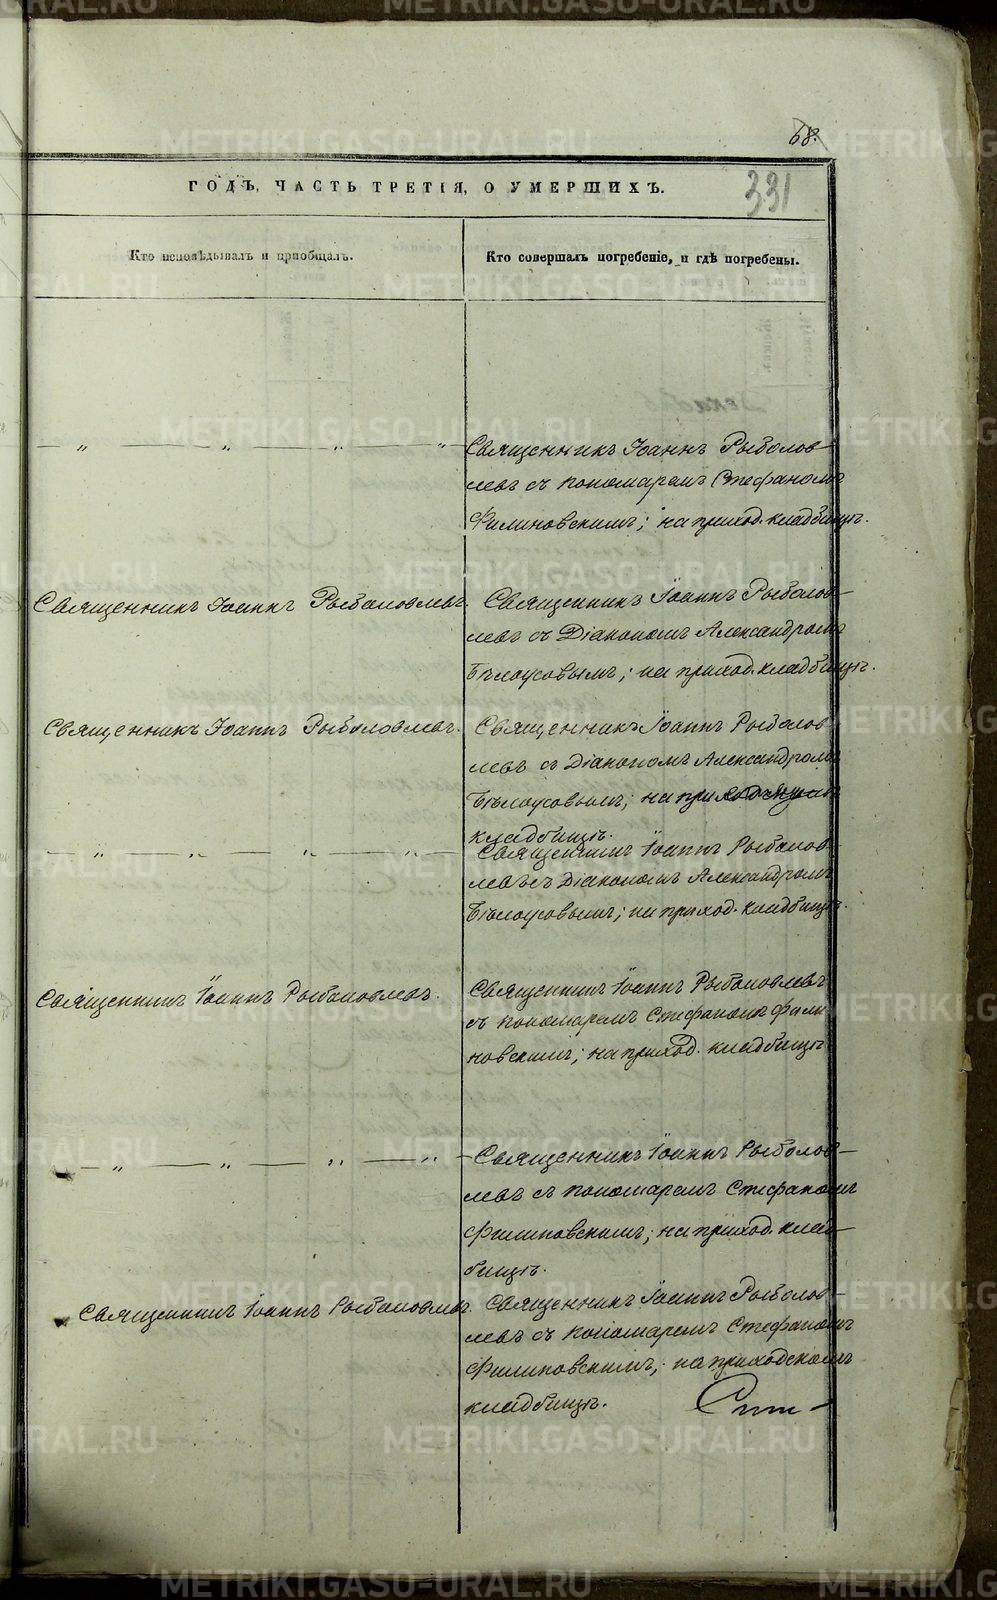 68.
ГОДЪ, ЧАСТЬ ТРЕТІЯ, О УМЕРШИХЪ.
331
Кто исповѣдывалъ и пріобщалъ.
Кто совершалъ погребеніе, и гдѣ погребены.
— „ — „ — „ — „ —
Священникъ Іоаннъ Рыболов-
левъ съ пономаремъ Стефаномъ
Филиновскимъ; на приход. кладбищѣ.
Священникъ Іоаннъ Рыболовлевъ.
Священникъ Іоаннъ Рыболов-
левъ съ Діакономъ Александромъ
Бѣлоусовымъ; на приход. кладбищѣ.
Священникъ Іоаннъ Рыболовлевъ.
Священникъ Іоаннъ Рыболов-
левъ съ Діакономъ Александромъ
Бѣлоусовымъ; на приходскомъ
кладбищѣ.
— „ — „ — „ — „ —
Священникъ Іоаннъ Рыболов-
левъ съ Діакономъ Александромъ
Бѣлоусовымъ; на приход. кладбищѣ.
Священникъ Іоаннъ Рыболовлевъ.
Священникъ Іоаннъ Рыболовлевъ
съ пономаремъ Стефаномъ Фили-
новскимъ; на приход. кладбищѣ
— „ — „ — „ — „ —
Священникъ Іоаннъ Рыболов-
левъ съ пономаремъ Стефаномъ
Филиновскимъ; на приход. клад-
бищѣ.
Священникъ Іоаннъ Рыболовлевъ.
Священникъ Іоаннъ Рыболов-
левъ съ пономаремъ Стефаномъ
Филиновскимъ; на приходскомъ
кладбищѣ.
METRIKI.GASO-URAL.RU